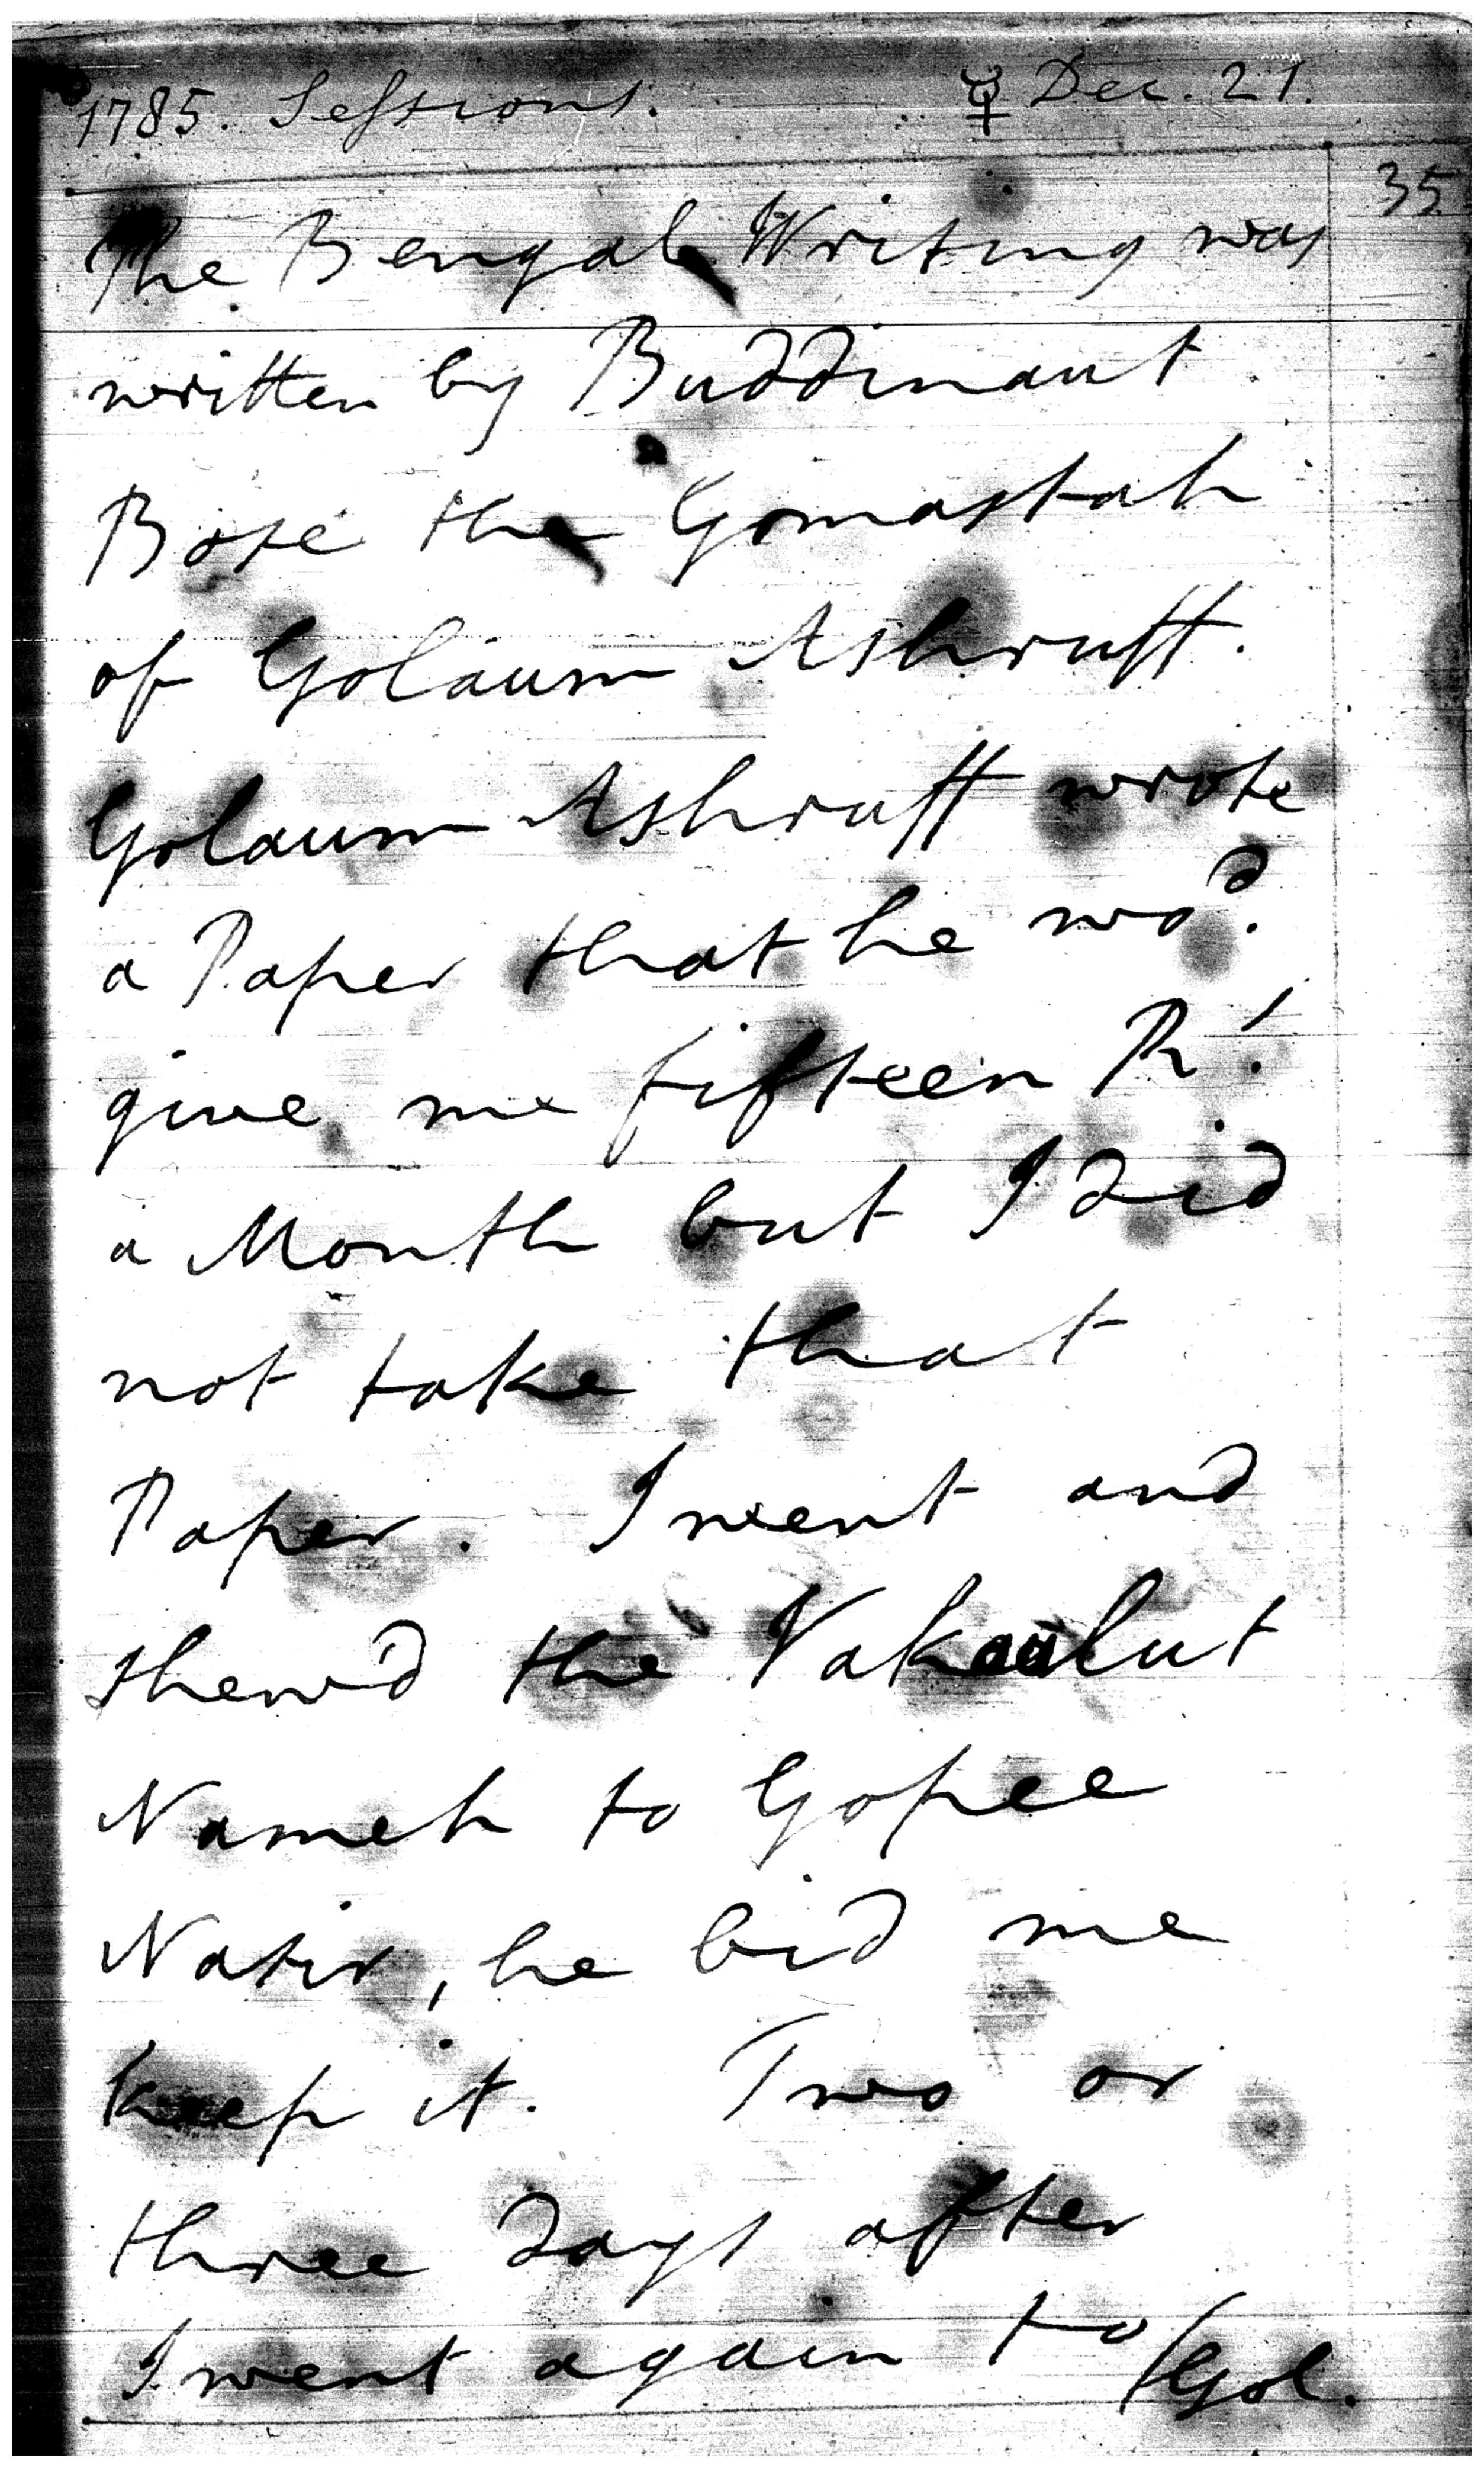 1785. Sessions. ☿ Dec. 21.
35
The Bengal Writing was
written by Buddinaut
Bose the Gomastah
of Golaum Ashruff.
Golaum Ashruff wrote
a Paper that he wo^d.
give me fifteen R^s.
a Month but I did
not take that
Paper. I went and
shew'd the Vakaulut
Nameh to Gopee
Nasir, he bid me
keep it. Two or
three days after
I went again to
/Gol.